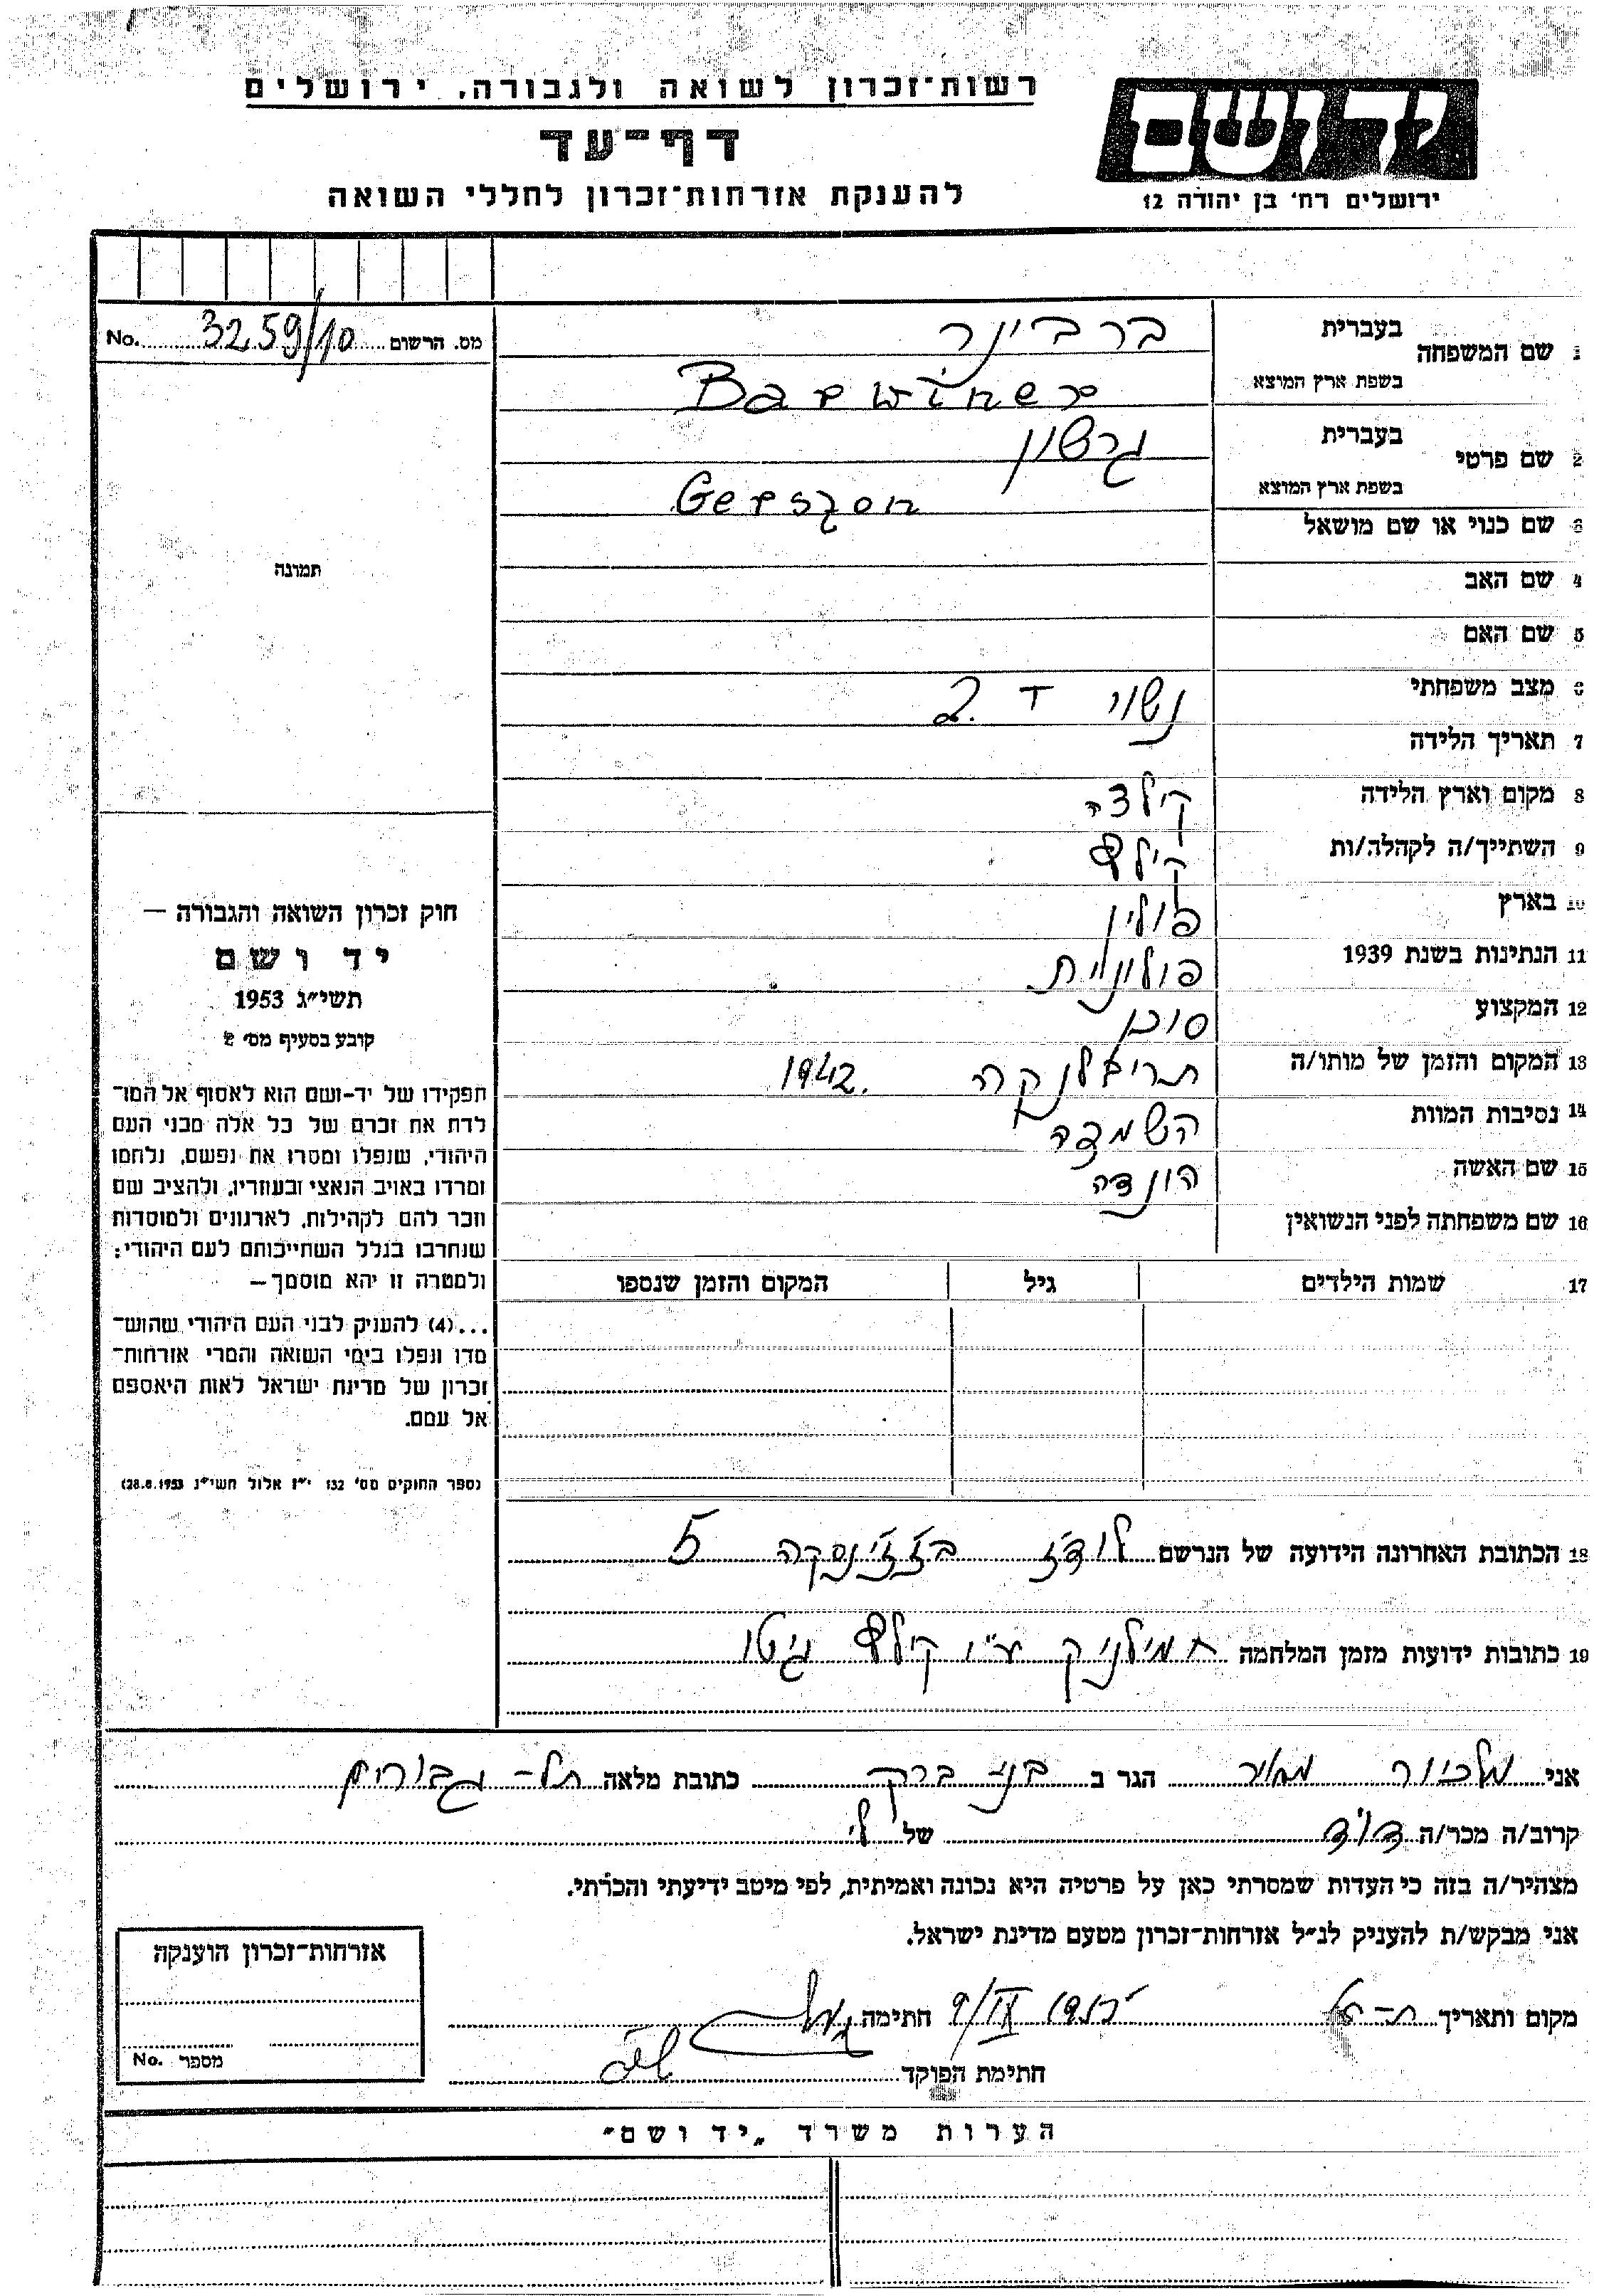 רשות־זכרון לשואה ולגבורה. ירושלים
דף־עד
להענקת אזרחות־זכרון לחללי השואה
יד ושם
ירושלים רח' בן יהודה 12
מס. הרשום 3259/10 No.
תמונה
1 שם המשפחה
בעברית ברבינר
בשפת ארץ המוצא Barwiner
2 שם פרטי
בעברית גרשון
בשפת ארץ המוצא Gerszon
3 שם כנוי או שם מושאל
4 שם האב
5 שם האם
6 מצב משפחתי נשוי + 2.
7 תאריך הלידה
8 מקום וארץ הלידה קילצה
9 השתייך/ה לקהלה/ות
10 בארץ פולין
11 הנתינות בשנת 1939 פולונית
12 המקצוע סוכן
13 המקום והזמן של מותו/ה טריבלנקה 1942.
14 נסיבות המוות השמדה
15 שם האשה הונדה
16 שם משפחתה לפני הנשואין
17 שמות הילדים גיל המקום והזמן שנספו
חוק זכרון השואה והגבורה —
יד ושם
תשי״ג 1953
קובע בסעיף מס׳ 2
תפקידו של יד-ושם הוא לאסוף אל המו־
לדת את זכרם של כל אלה מבני העם
היהודי, שנפלו ומסרו את נפשם, נלחמו
ומרדו באויב הנאצי ובעוזריו, ולהציב שם
וזכר להם לקהילות, לארגונים ולמוסדות
שנחרבו בגלל השתייכותם לעם היהודי;
ולמטרה זו יהא מוסמך —
...(4) להעניק לבני העם היהודי שהוש־
מדו ונפלו בימי השואה והמרי אזרחות־
זכרון של מדינת ישראל לאות היאספם
אל עמם.
(ספר החוקים מס׳ 132 י״ז אלול תשי״ג 28.8.1953)
18 הכתובת האחרונה הידועה של הנרשם לודז בז'ז'ינסקה 5
19 כתובות ידועות מזמן המלחמה חמילניק ע״י גיטו
אני מלכיור מאיר הגר ב בני ברק כתובת מלאה תל-גבורים
קרוב/ה מכר/ה דוד של לי
מצהיר/ה בזה כי העדות שמסרתי כאן על פרטיה היא נכונה ואמיתית, לפי מיטב ידיעתי והכרתי.
אני מבקש/ת להעניק לנ״ל אזרחות־זכרון מטעם מדינת ישראל.
מקום ותאריך 9/IX חתימה
חתימת הפוקד
אזרחות־זכרון הוענקה
מספר No.
הערות משרד „יד ושם״